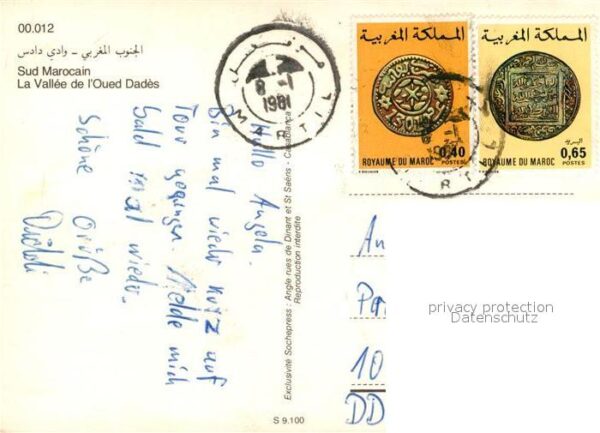 00.012
الجنوب المغربي - وادي دادس
Sud Marocain
La Vallée de l'Oued Dadès
Hallo Angela.
Bin mal wieder kurz auf
Tour gegangen. Melde mich
bald mal wieder.
Schöne Grüße
Exclusivité Sochepress : Angle rues de Dinant et St Saëns - Casablanca
Reproduction interdite
S 9.100
MARTIL
8 -1
1981
المملكة المغربية
0,40
ROYAUME DU MAROC
POSTES
المملكة المغربية
0,65
ROYAUME DU MAROC
POSTES
An
10
DD
privacy protection
Datenschutz